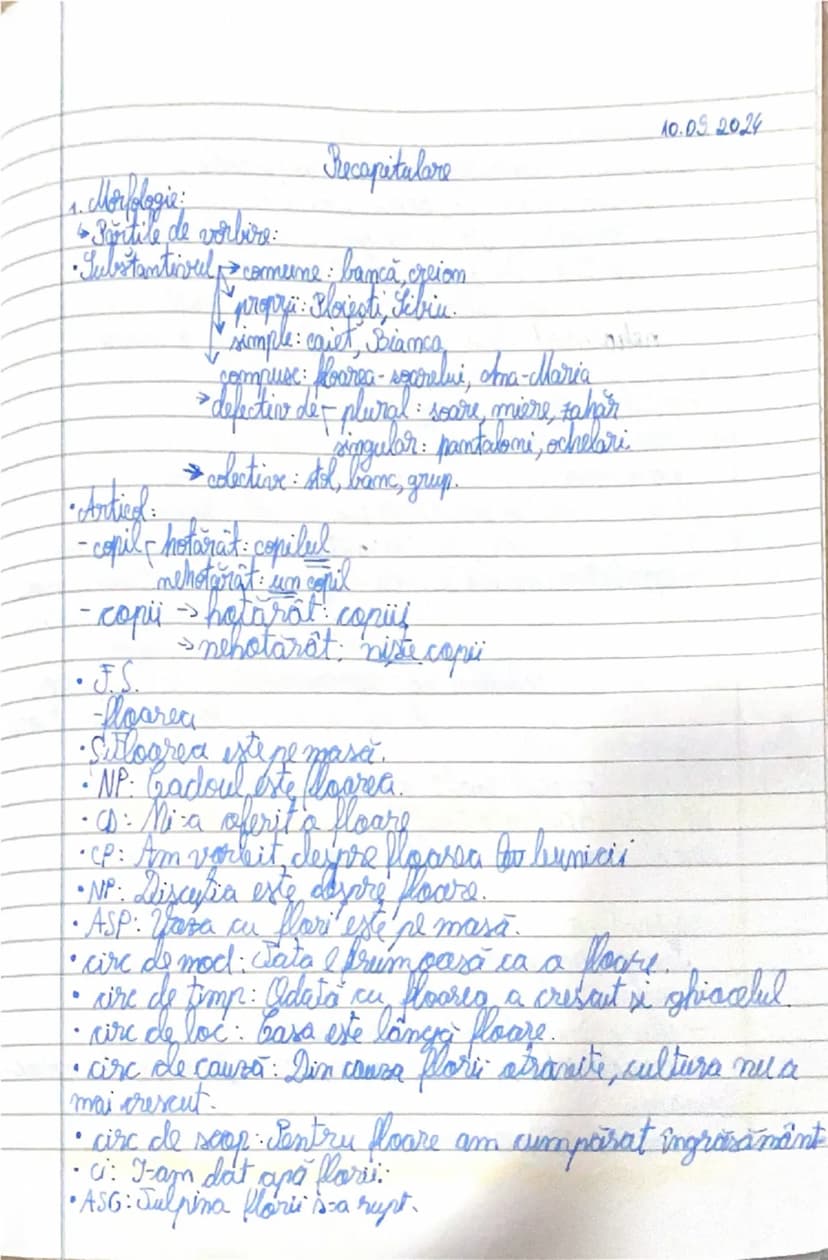 10.09.2024
Recapitulare
1. Morfologie:
↳ Părțile de vorbire:
• Substantivul → comune: bancă, creion
proprii: Ploiești, Sibiu.
simple: caiet, Bianca
compuse: floarea-soarelui, Ana-Maria
→ defectiv de - plural: soare, miere, zahăr
singular: pantaloni, ochelari.
→ colective: stol, banc, grup.
• Articol:
- copil - hotărât: copilul
nehotărât: un copil
- copii → hotărât: copiii
→ nehotărât: niște copii
• F.S.
- floarea
• S: Floarea este pe masă.
• NP: Cadoul este floarea.
• CD: Mi-a oferit o floare
• CP: Am vorbit despre floarea bunicii
• NP: Discuția este despre floare.
• ASP: Vaza cu flori este pe masă.
• circ de mod: Fata e frumoasă ca o floare.
• circ de timp: Odată cu floarea a crescut și ghiocelul.
• circ de loc: Casa este lângă floare.
• circ de cauză: Din cauza florii, cultura nu a
mai crescut.
• circ de scop: Pentru floare am cumpărat îngrășământ
• CI: I-am dat apă florii.
• ASG: Tulpina florii s-a rupt.